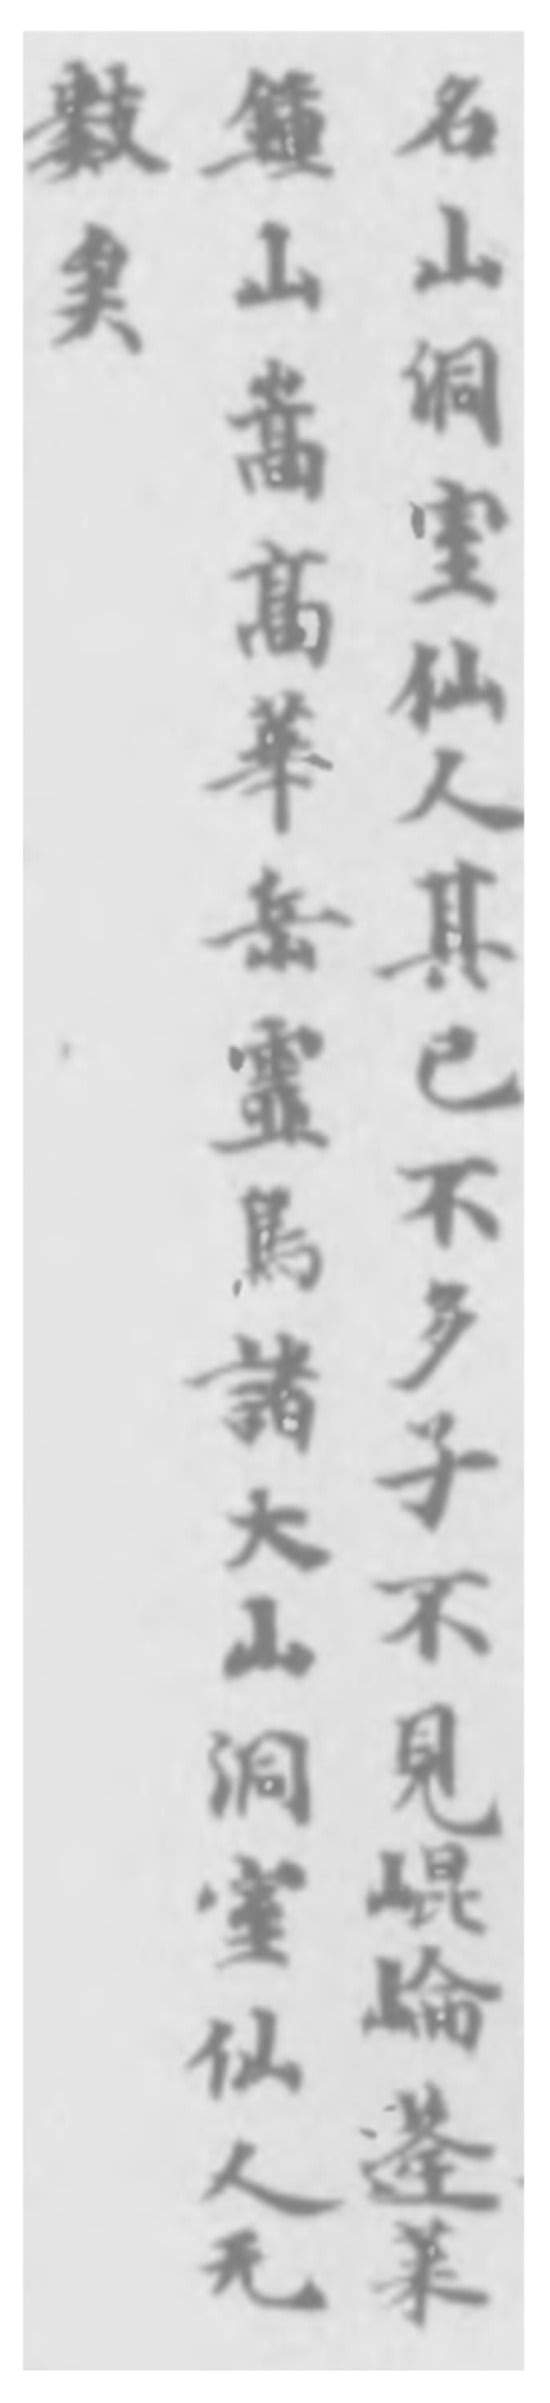 名山洞室仙人其已不多子不見崐崘蓬萊
鍾山嵩髙華岳靈鳥諸大山洞室仙人无
數矣